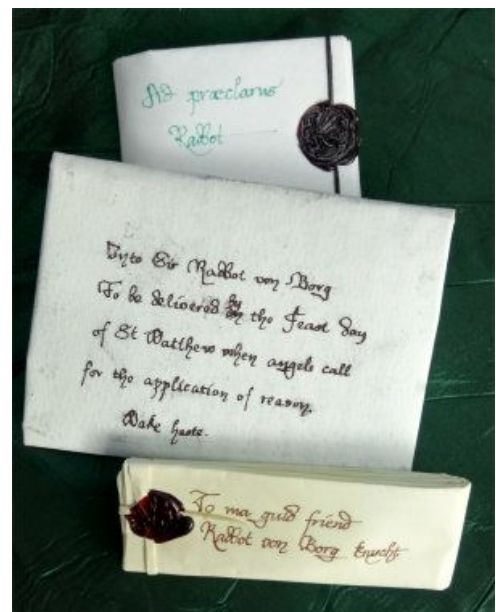 Ad præclarus
Radbot
Unto Sir Radbot von Borg
To be delivered by the Feast day
of St Matthew when angels call
for the application of reason.
Make haste.
To ma guid friend
Radbot von Borg